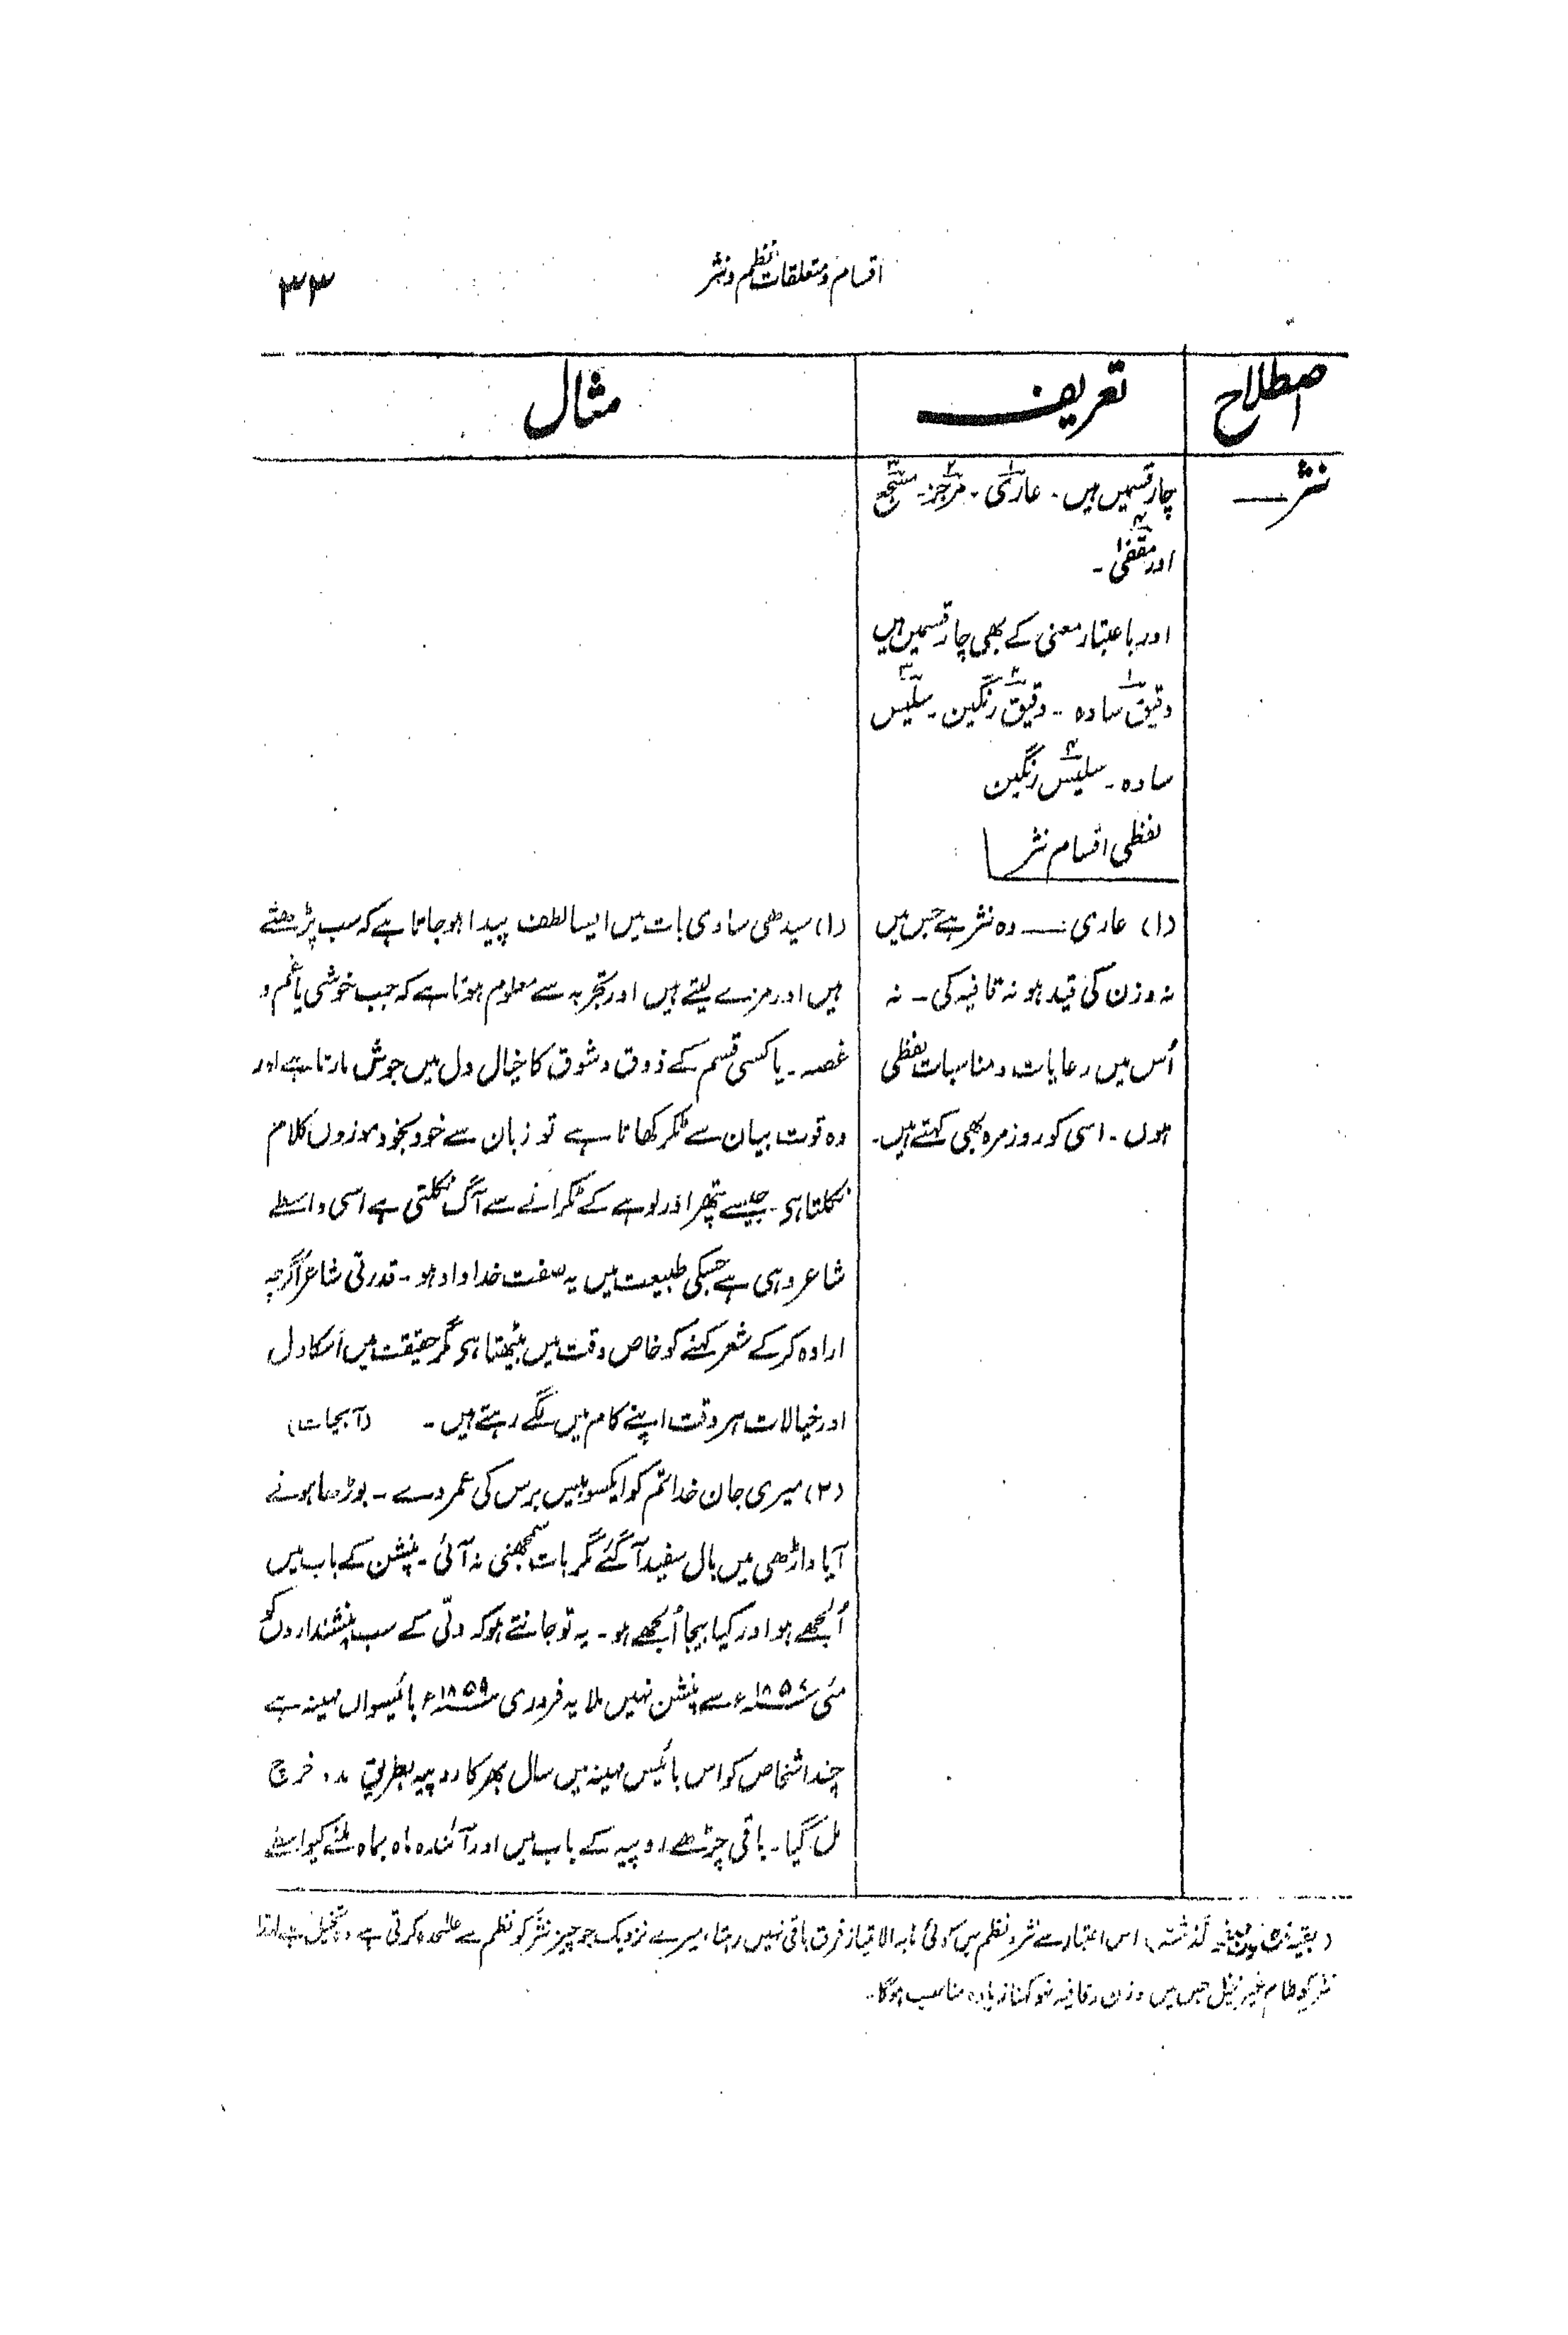 اقسام و متعلقات نظم و نثر
۳۳
اصطلاح
تعریف
مثال
نثر
چار قسمیں ہیں۔ عاری۔ مرجز۔ مسجع
اور مقفیٰ۔
اور باعتبار معنی کے بھی چار قسمیں ہیں
دقیق سادہ۔ دقیق رنگین۔ سلیس
سادہ۔ سلیس رنگین
لفظی اقسام نثر
(۱) عاری :— وہ نثر ہے جس میں
نہ وزن کی قید ہو نہ قافیہ کی۔ نہ
اُس میں رعایات و مناسبات لفظی
ہوں۔ اسی کو روزمرہ بھی کہتے ہیں۔
(۱) سیدھی سادی بات میں ایسا لطف پیدا ہو جاتا ہے کہ سب پڑھتے
ہیں اور مزے لیتے ہیں اور تجربہ سے معلوم ہوتا ہے کہ جب خوشی یا غم و
غصہ۔ یا کسی قسم کے ذوق و شوق کا خیال دل میں جوش مارتا ہے اور
وہ قوت بیان سے ٹکر کھاتا ہے تو زبان سے خود بخود موزوں کلام
نکلتا ہی۔ جیسے پتھر اور لوہے کے ٹکرانے سے آگ نکلتی ہے اسی واسطے
شاعر وہی ہے جسکی طبیعت میں یہ صفت خداداد ہو۔ قدرتی شاعر اگرچہ
ارادہ کر کے شعر کہنے کو خاص وقت میں بیٹھتا ہی مگر حقیقت میں اُسکا دل
اور خیالات ہر وقت اپنے کام میں لگے رہتے ہیں۔ (آبحیات)
(۲) میری جان خدا تم کو ایکسو بیس برس کی عمر دے۔ بوڑھا ہونے
آیا داڑھی میں بال سفید آ گئے مگر بات سمجھنی نہ آئی۔ پنشن کے باب میں
اُلجھے ہو اور کیا بیجا اُلجھے ہو۔ یہ تو جانتے ہو کہ دلّی کے سب پنشنداروں کو
مئی ۱۸۵۷ء سے پنشن نہیں ملا یہ فروری ۱۸۵۹ء بائیسواں مہینہ ہے
چند اشخاص کو اس بائیس مہینہ میں سال بھر کا روپیہ بطریق مدد خرچ
مل گیا۔ باقی چڑھے روپیہ کے باب میں اور آئندہ ماہ بماہ ملنے کیواسطے
(بقیہ نوٹ صفحہ گذشتہ) اس اعتبار سے نثر و نظم میں کوئی مابہ الامتیاز فرق باقی نہیں رہتا، میرے نزدیک جو چیز نثر کو نظم سے علٰحدہ کرتی ہے وہ تخیل ہے لہٰذا
نثر کو کلام غیر مخیل جس میں وزن و قافیہ نہو کہنا زیادہ مناسب ہوگا۔